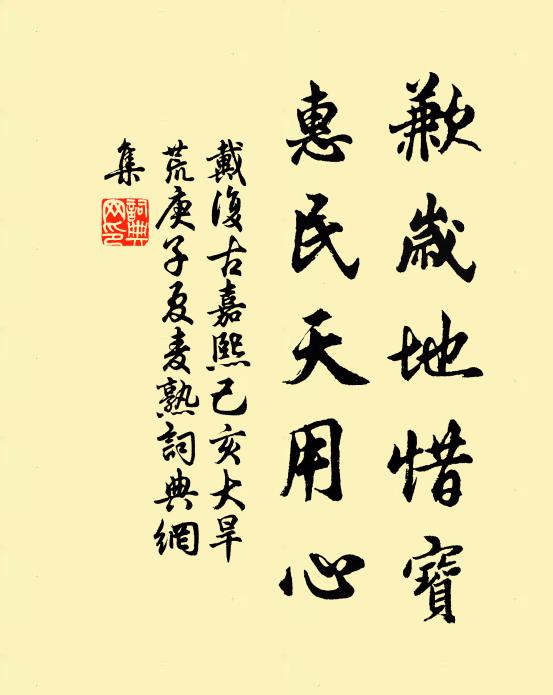 歉歲地惜寶
惠民天用心
戴復古嘉熙己亥大旱
荒庚子夏麥熟詞典網
集
詞典
网印